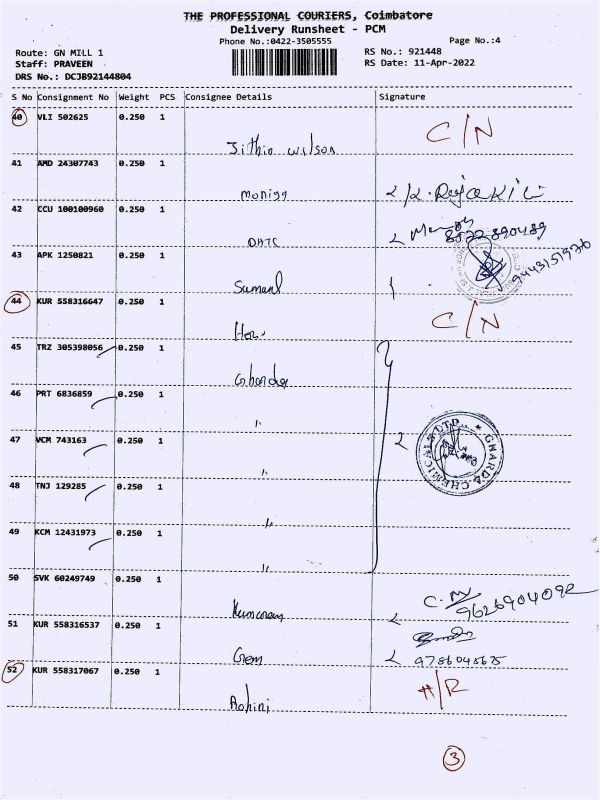 THE PROFESSIONAL COURIERS, Coimbatore
Delivery Runsheet - PCM
Phone No.:0422-3505555
Page No.:4
Route: GN MILL 1
RS No.: 921448
Staff: PRAVEEN
RS Date: 11-Apr-2022
DRS No.: DCJB92144804
S No Consignment No Weight PCS Consignee Details Signature
40 VLI 502625 0.250 1 Jithin Wilson C/N
41 AMD 24307743 0.250 1
42 CCU 100100960 0.250 1 DHTC
43 APK 1250821 0.250 1 9443151976
44 KUR 558316647 0.250 1 C/N
45 TRZ 305398056 0.250 1
46 PRT 6836859 0.250 1 "
47 VCM 743163 0.250 1 "
GHARDA CHEMICALS LTD
48 TNJ 129285 0.250 1 "
49 KCM 12431973 0.250 1 "
50 SVK 60249749 0.250 1 9626904092
51 KUR 558316537 0.250 1 Gem
52 KUR 558317067 0.250 1 Rohini #/R
3